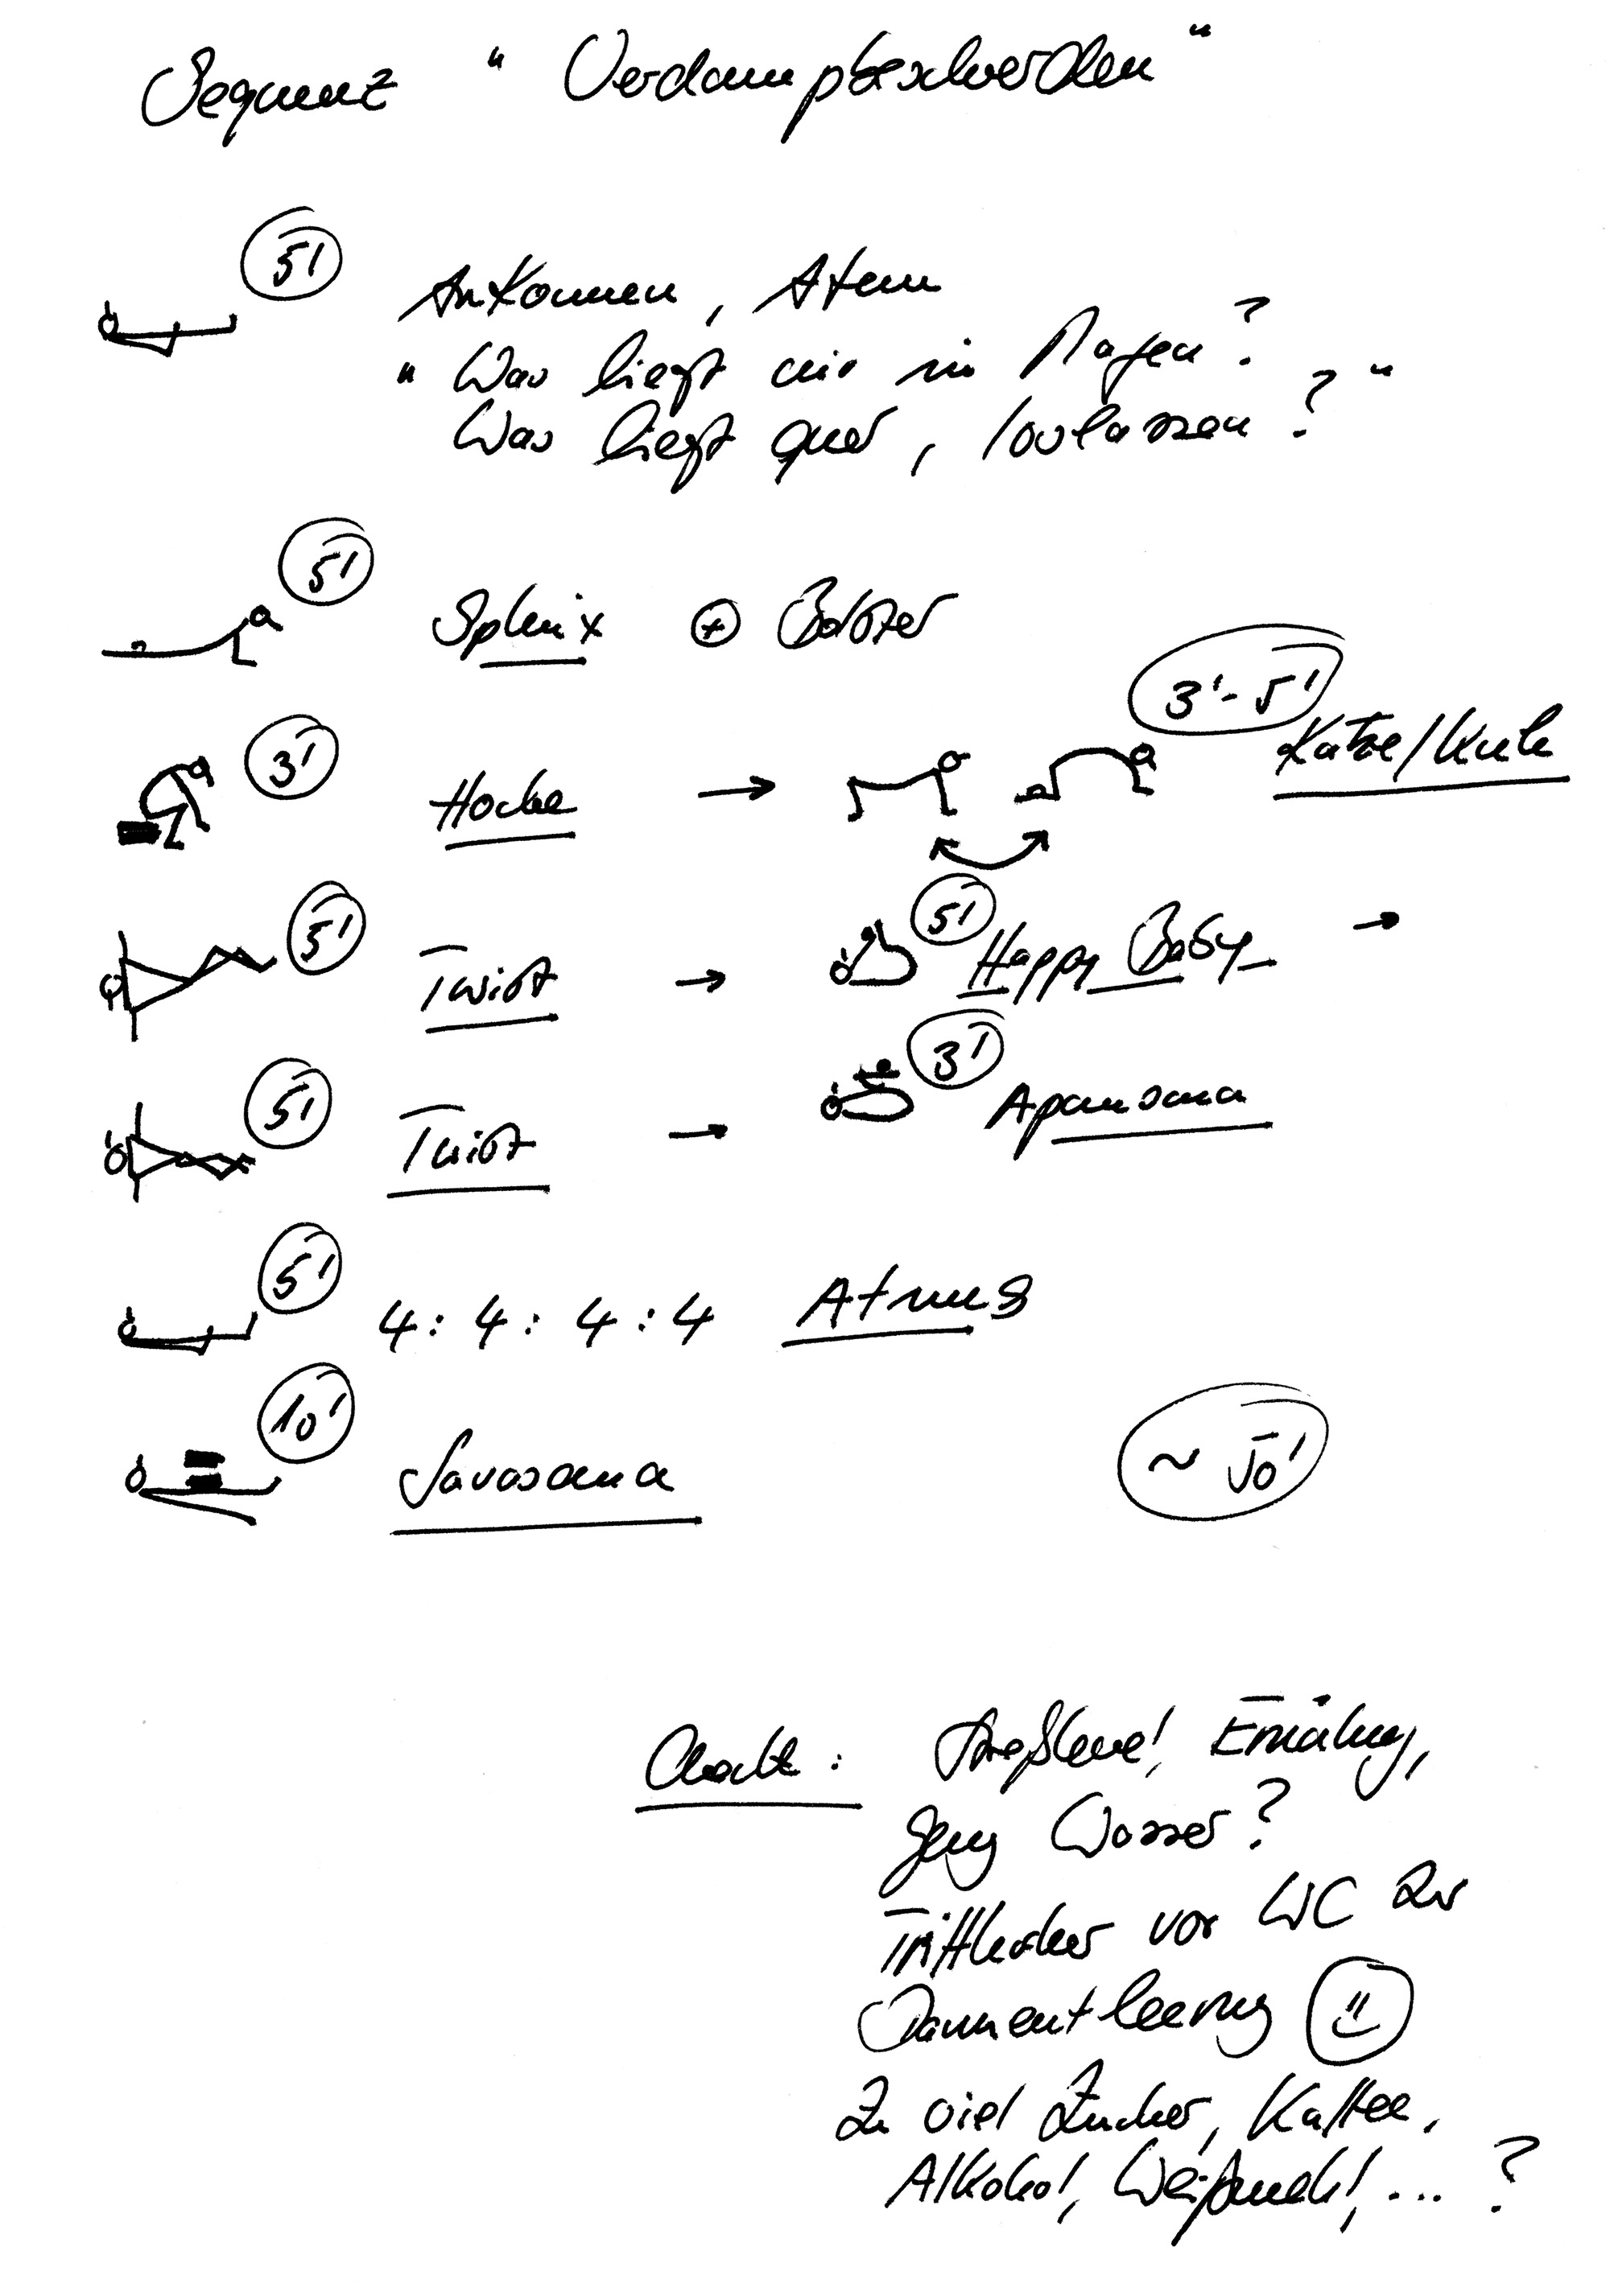 Sequenz "Verdauungsbeschwerden"
5'
Ankommen, Atem
"Was liegt mir im Magen?
Was liegt quer, loslassen?"
5'
Sphinx + Bolster
3' Hocke → 3'-5' Katze/Kuh
5' Twist → 5' Happy Baby →
5' Twist → 3' Apanasana
5' 4:4:4:4 Atmung
10' Savasana ~ 50'
Check: Streßlevel, Ernährung,
genug Wasser?
Tritthocker vor WC zur
Darmentleerung
Zu viel Zucker, Kaffee,
Alkohol, Weißmehl, ... ?